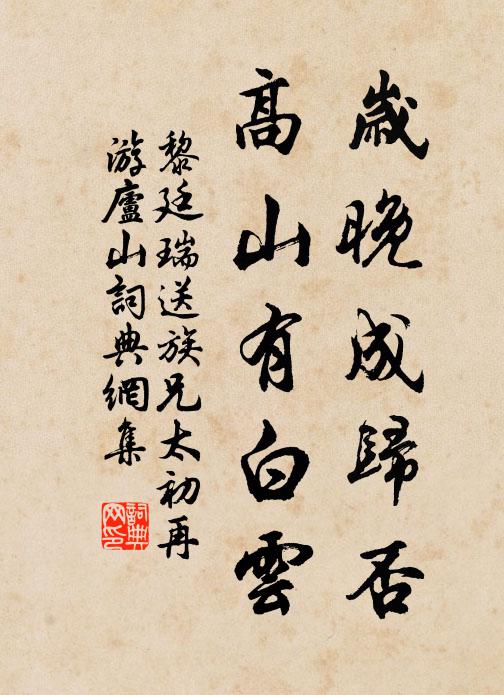 歲晚成歸否
高山有白雲
黎廷瑞送族兄太初再
游廬山詞典網集
詞典网印